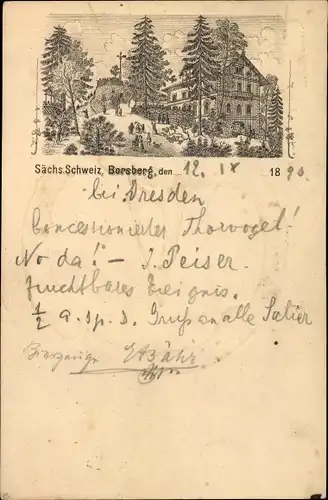 Sächs. Schweiz, Borsberg, den 12. IX 1890
bei Dresden
Concessionierter Thorvogel!
No da! – J. Peiser.
furchtbares Ereignis.
1/2 a. sp. d. Gruß an alle Salier